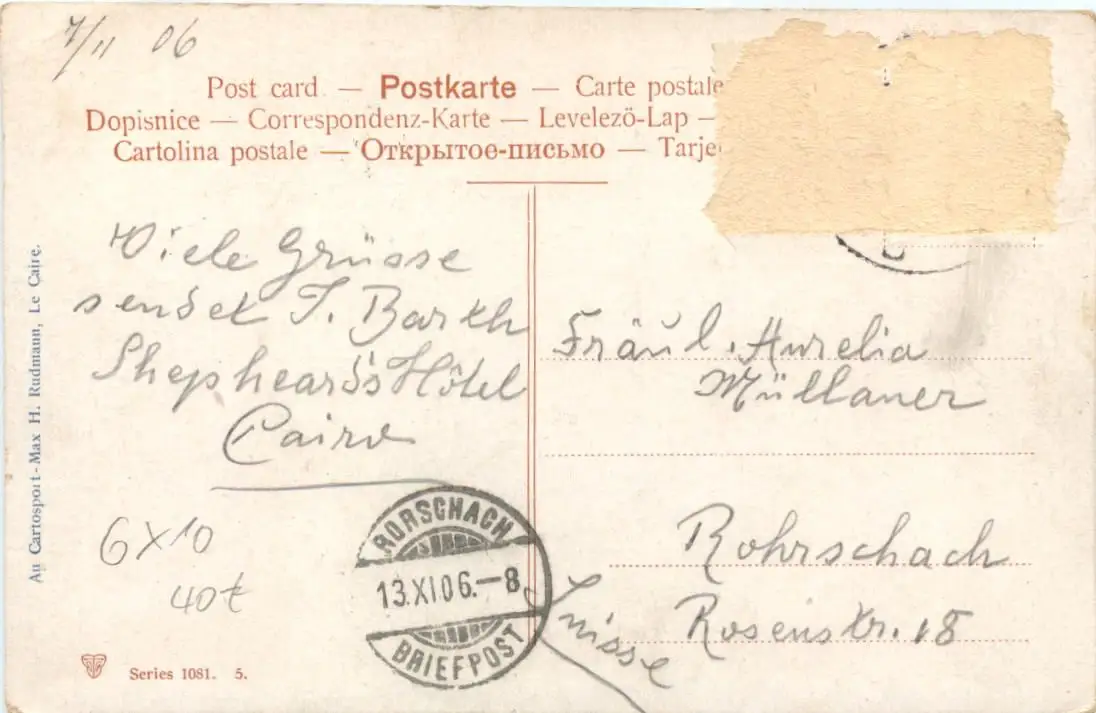 7/11 06
Post card — Postkarte — Carte postale
Dopisnice — Correspondenz-Karte — Levelező-Lap —
Cartolina postale — Открытое-письмо — Tarje
Viele Grüsse
sendet J. Barth
Shepheards Hôtel
Cairo
Au Cartosport - Max H. Rudmann, Le Caire.
6 X 10
40t
Series 1081. 5.
RORSCHACH
13.XI.06.–8
BRIEFPOST
Fräul. Aurelia
Müllaner
Rohrschach
Rosenstr. 18
Suisse